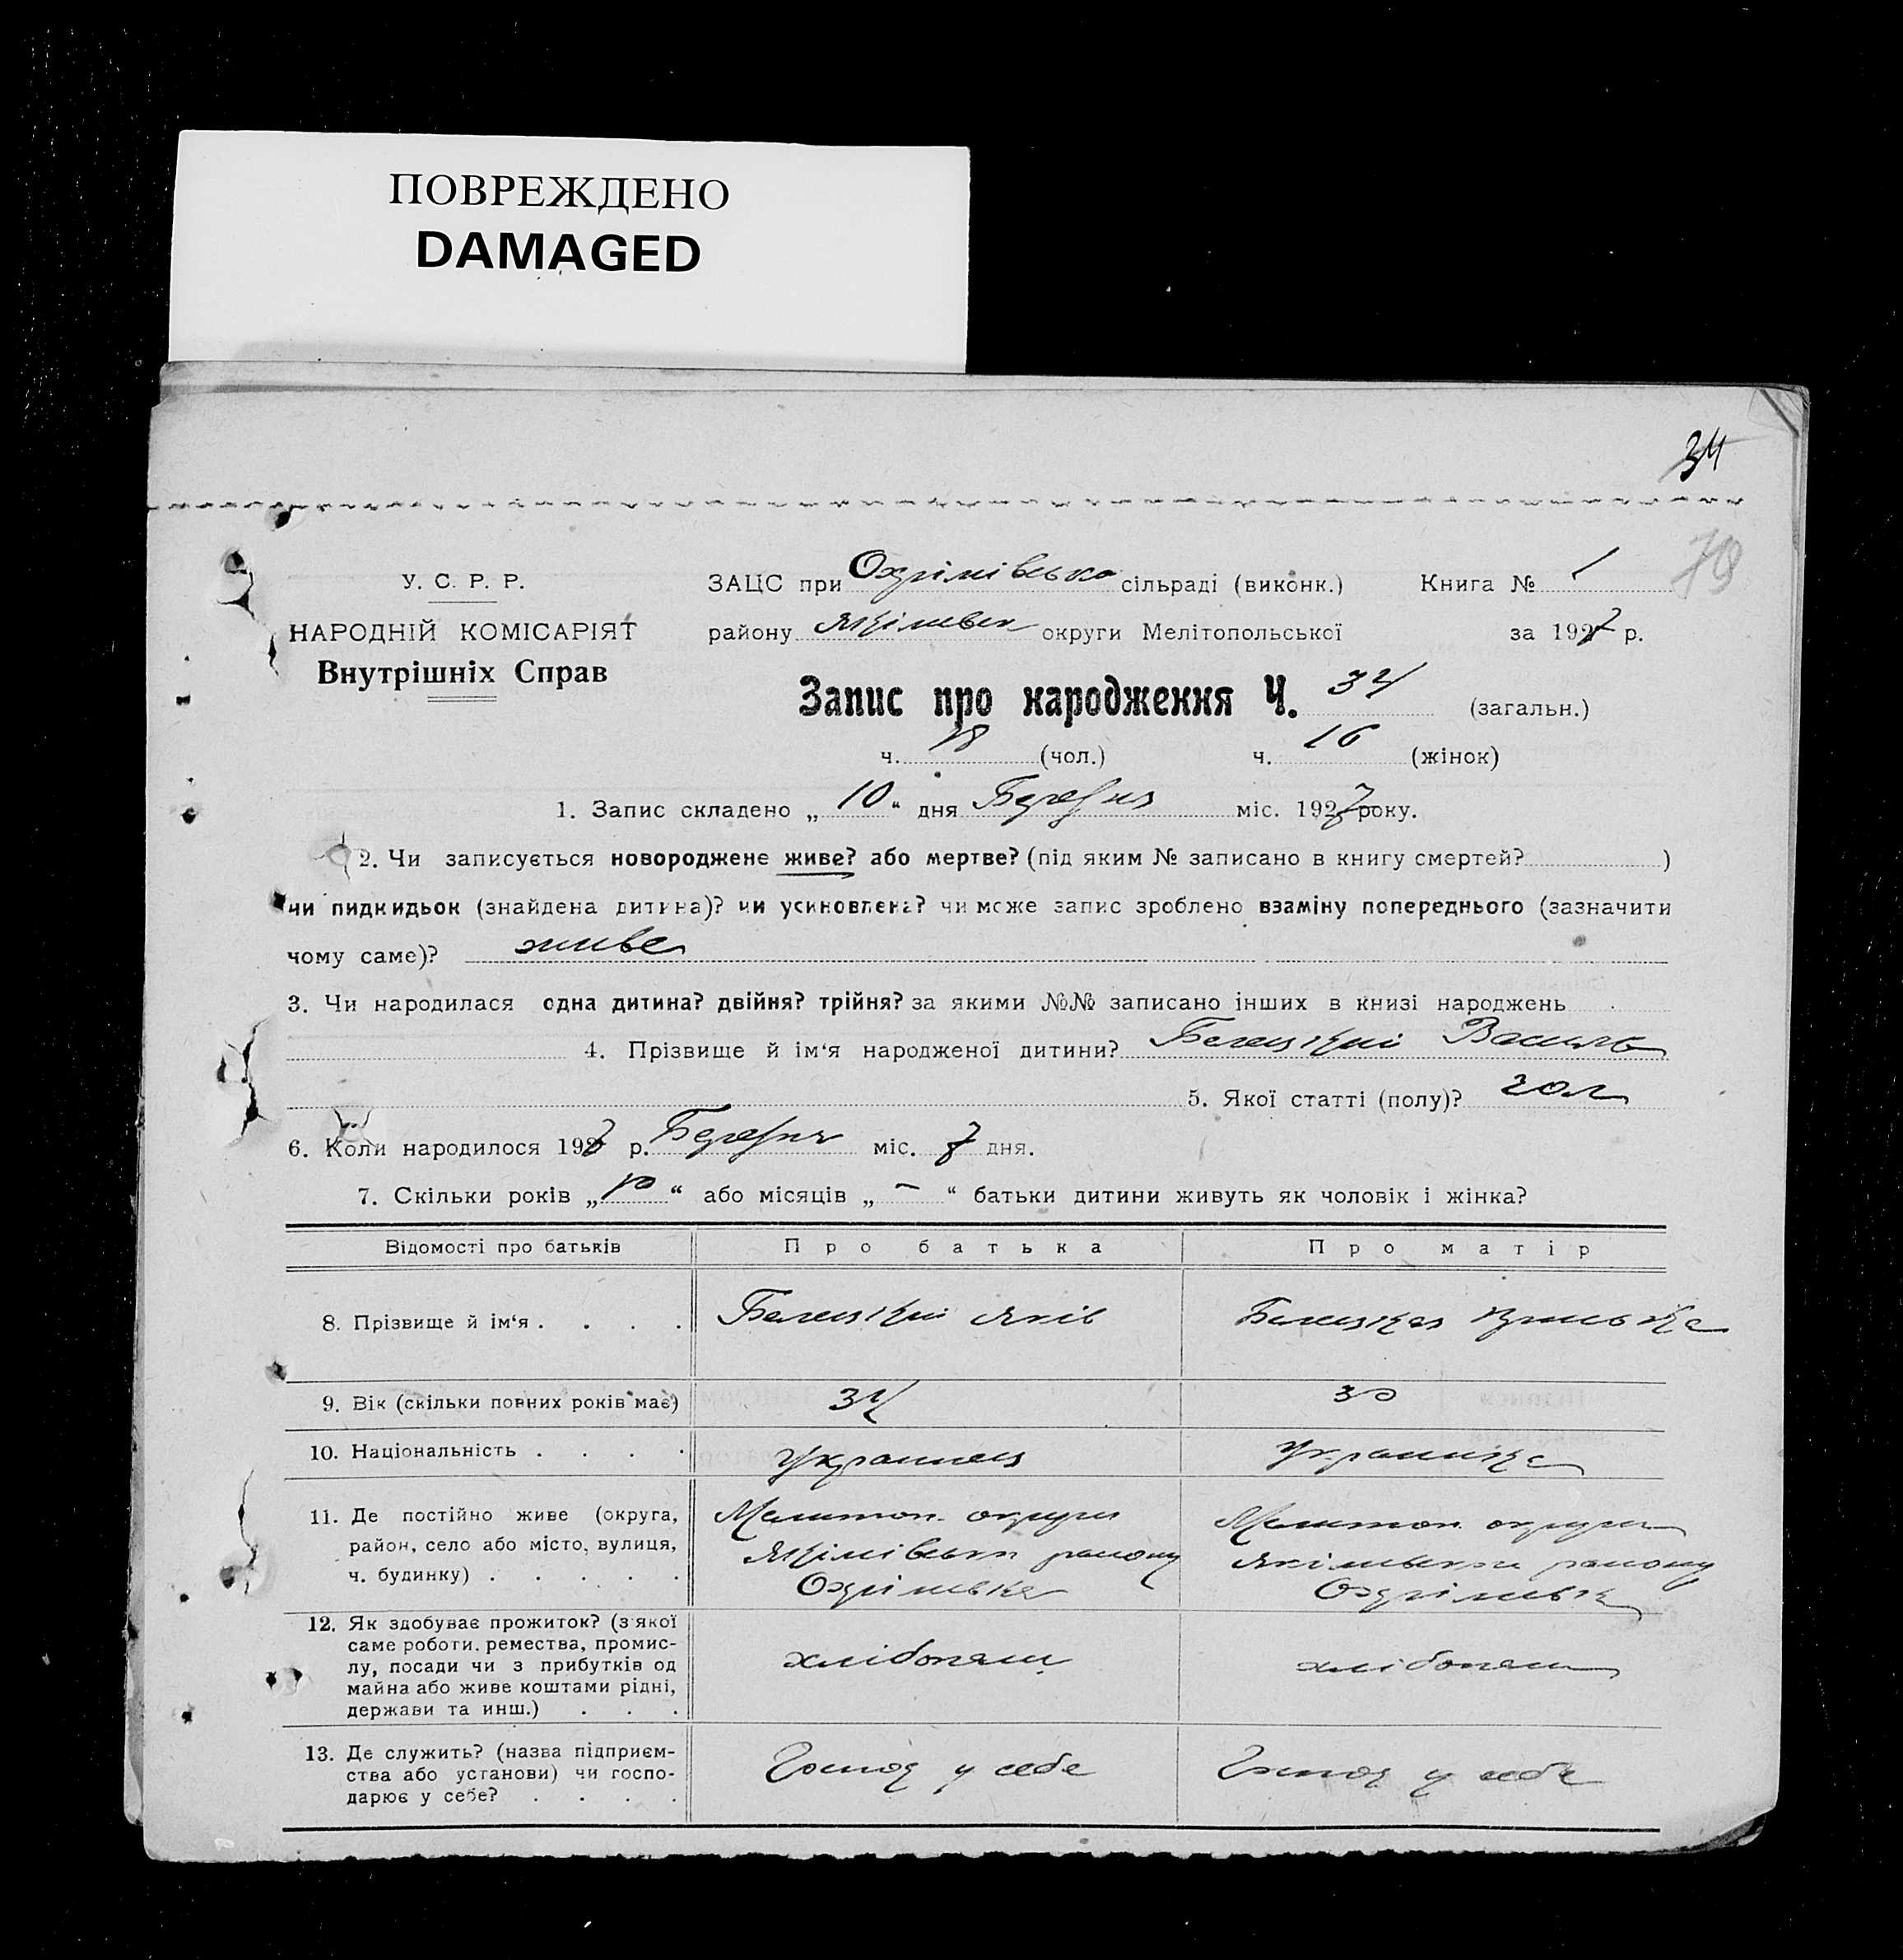 ПОВРЕЖДЕНО
DAMAGED
34
79
У. С. Р. Р.
НАРОДНІЙ КОМІСАРІЯТ
Внутрішніх Справ
ЗАЦС при Охрімівсько сільраді (виконк.) Книга № 1
району Якімівськ округи Мелітопольської за 1927 р.
Запис про народження Ч. 34 (загальн.)
ч. 18 (чол.) ч. 16 (жінок)
1. Запис складено „ 10 “ дня Березня міс. 1927 року.
2. Чи записується новороджене живе? або мертве? (під яким № записано в книгу смертей? )
чи пидкидьок (знайдена дитина)? чи усиновлена? чи може запис зроблено взаміну попереднього (зазначити
чому саме)? живе
3. Чи народилася одна дитина? двійня? трійня? за якими №№ записано інших в книзі народжень
4. Прізвище й ім‘я народженої дитини? Василь
5. Якої статті (полу)? чол
6. Коли народилося 1927 р. Березня міс. 7 дня.
7. Скільки років „ 10 “ або місяців „ – “ батьки дитини живуть як чоловік і жінка?
Відомості про батьків Про батька Про матір
8. Прізвище й ім‘я . . . . Яків
9. Вік (скільки повних років має) 34 30
10. Національність . . . . Украинец Украинка
11. Де постійно живе (округа,
район, село або місто, вулиця,
ч. будинку) . . . . .
Мелитоп. округи
Якімівськи району
Охрімівка
Мелитоп. округи
Якімівськи району
Охрімівка
12. Як здобуває прожиток? (з якої
саме роботи, ремества, промис-
лу, посади чи з прибутків од
майна або живе коштами рідні,
держави та инш.) . . .
хлібопаш хлібопаш
13. Де служить? (назва підприєм-
ства або установи) чи госпо-
дарює у себе? . . . .
Господ у себе Господ у себе